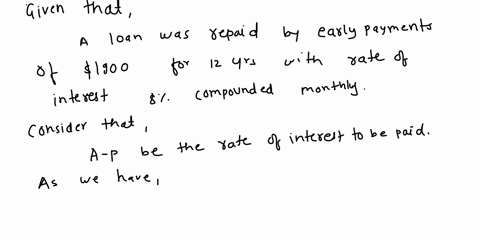 Given that,
A loan was repaid by early payments
of $1900 for 12 yrs with rate of
interest 8% compounded monthly.
Consider that,
A-p be the rate of interest to be paid.
As we have,